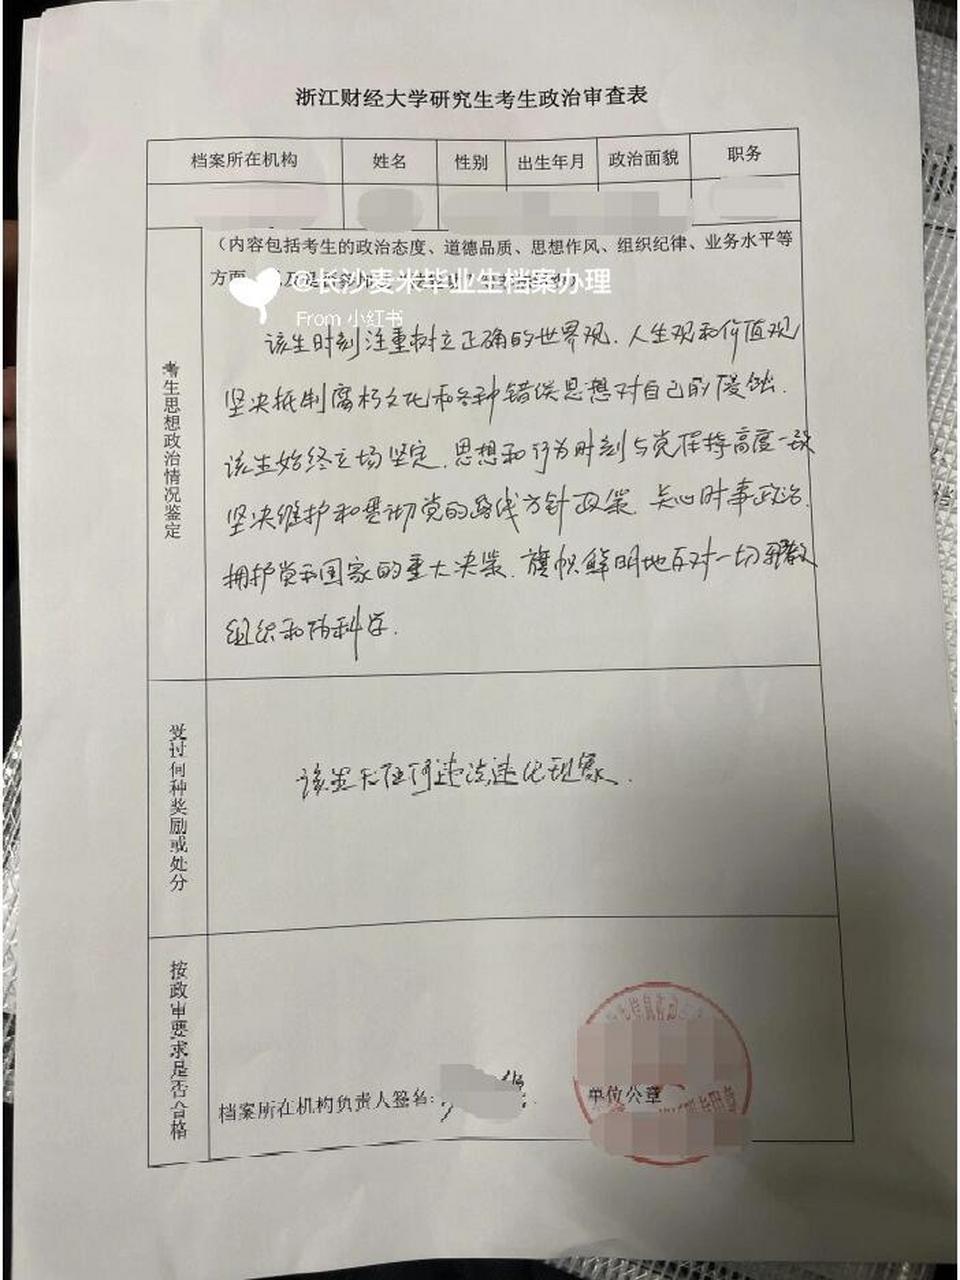 浙江财经大学研究生考生政治审查表
档案所在机构 姓名 性别 出生年月 政治面貌 职务
考生思想政治情况鉴定
（内容包括考生的政治态度、道德品质、思想作风、组织纪律、业务水平等
方面
@长沙麦米毕业生档案办理
From 小红书
该生时刻注重树立正确的世界观、人生观和价值观
坚决抵制腐朽文化和各种错误思想对自己的侵蚀.
该生始终立场坚定、思想和行为时刻与党保持高度一致
坚决维护和贯彻党的路线方针政策、关心时事政治、
拥护党和国家的重大决策、旗帜鲜明地反对一切邪教
组织和伪科学.
受过何种奖励或处分
该生无任何违法违化现象.
按政审要求是否合格
档案所在机构负责人签名:
单位公章